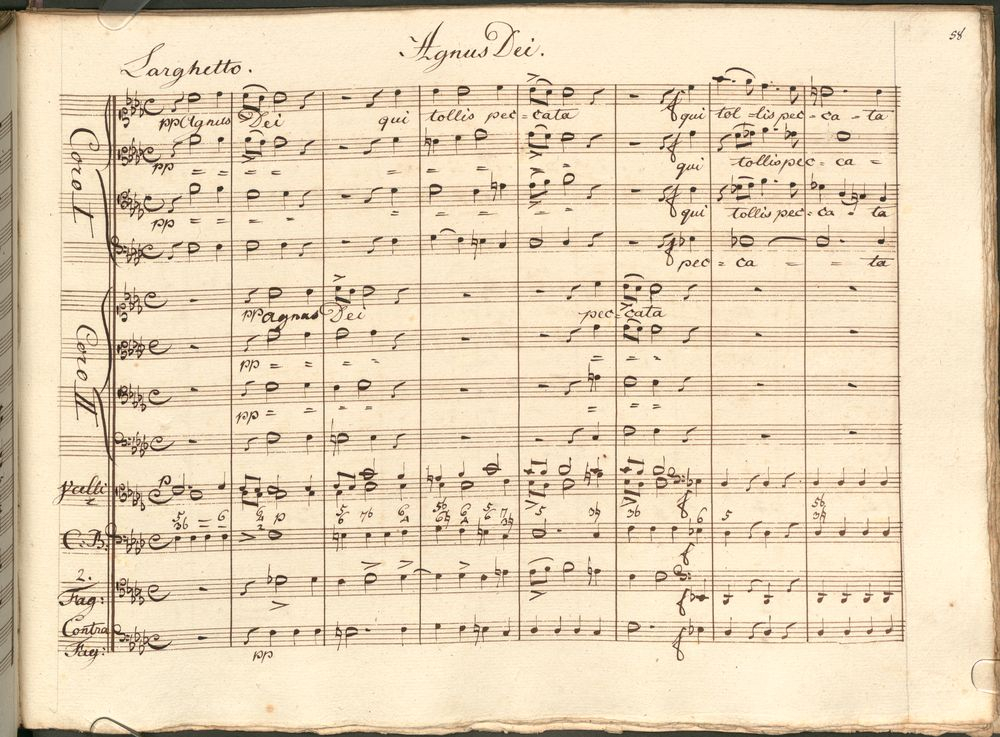 58
Agnus Dei.
Larghetto.
Coro I
pp Agnus Dei qui tollis pec=cata qui tol=lis pec=ca=ta
pp = = = = = = = = = qui tollis pec=ca=
pp = = = = = = = = = qui tollis pec=ca=ta
pec=ca = = ta
Coro II
pp agnus Dei pec=cata
pp = = = = = = =
pp = = = = = = =
C:B:
2.
Fag:
Contra
Fag:
pp